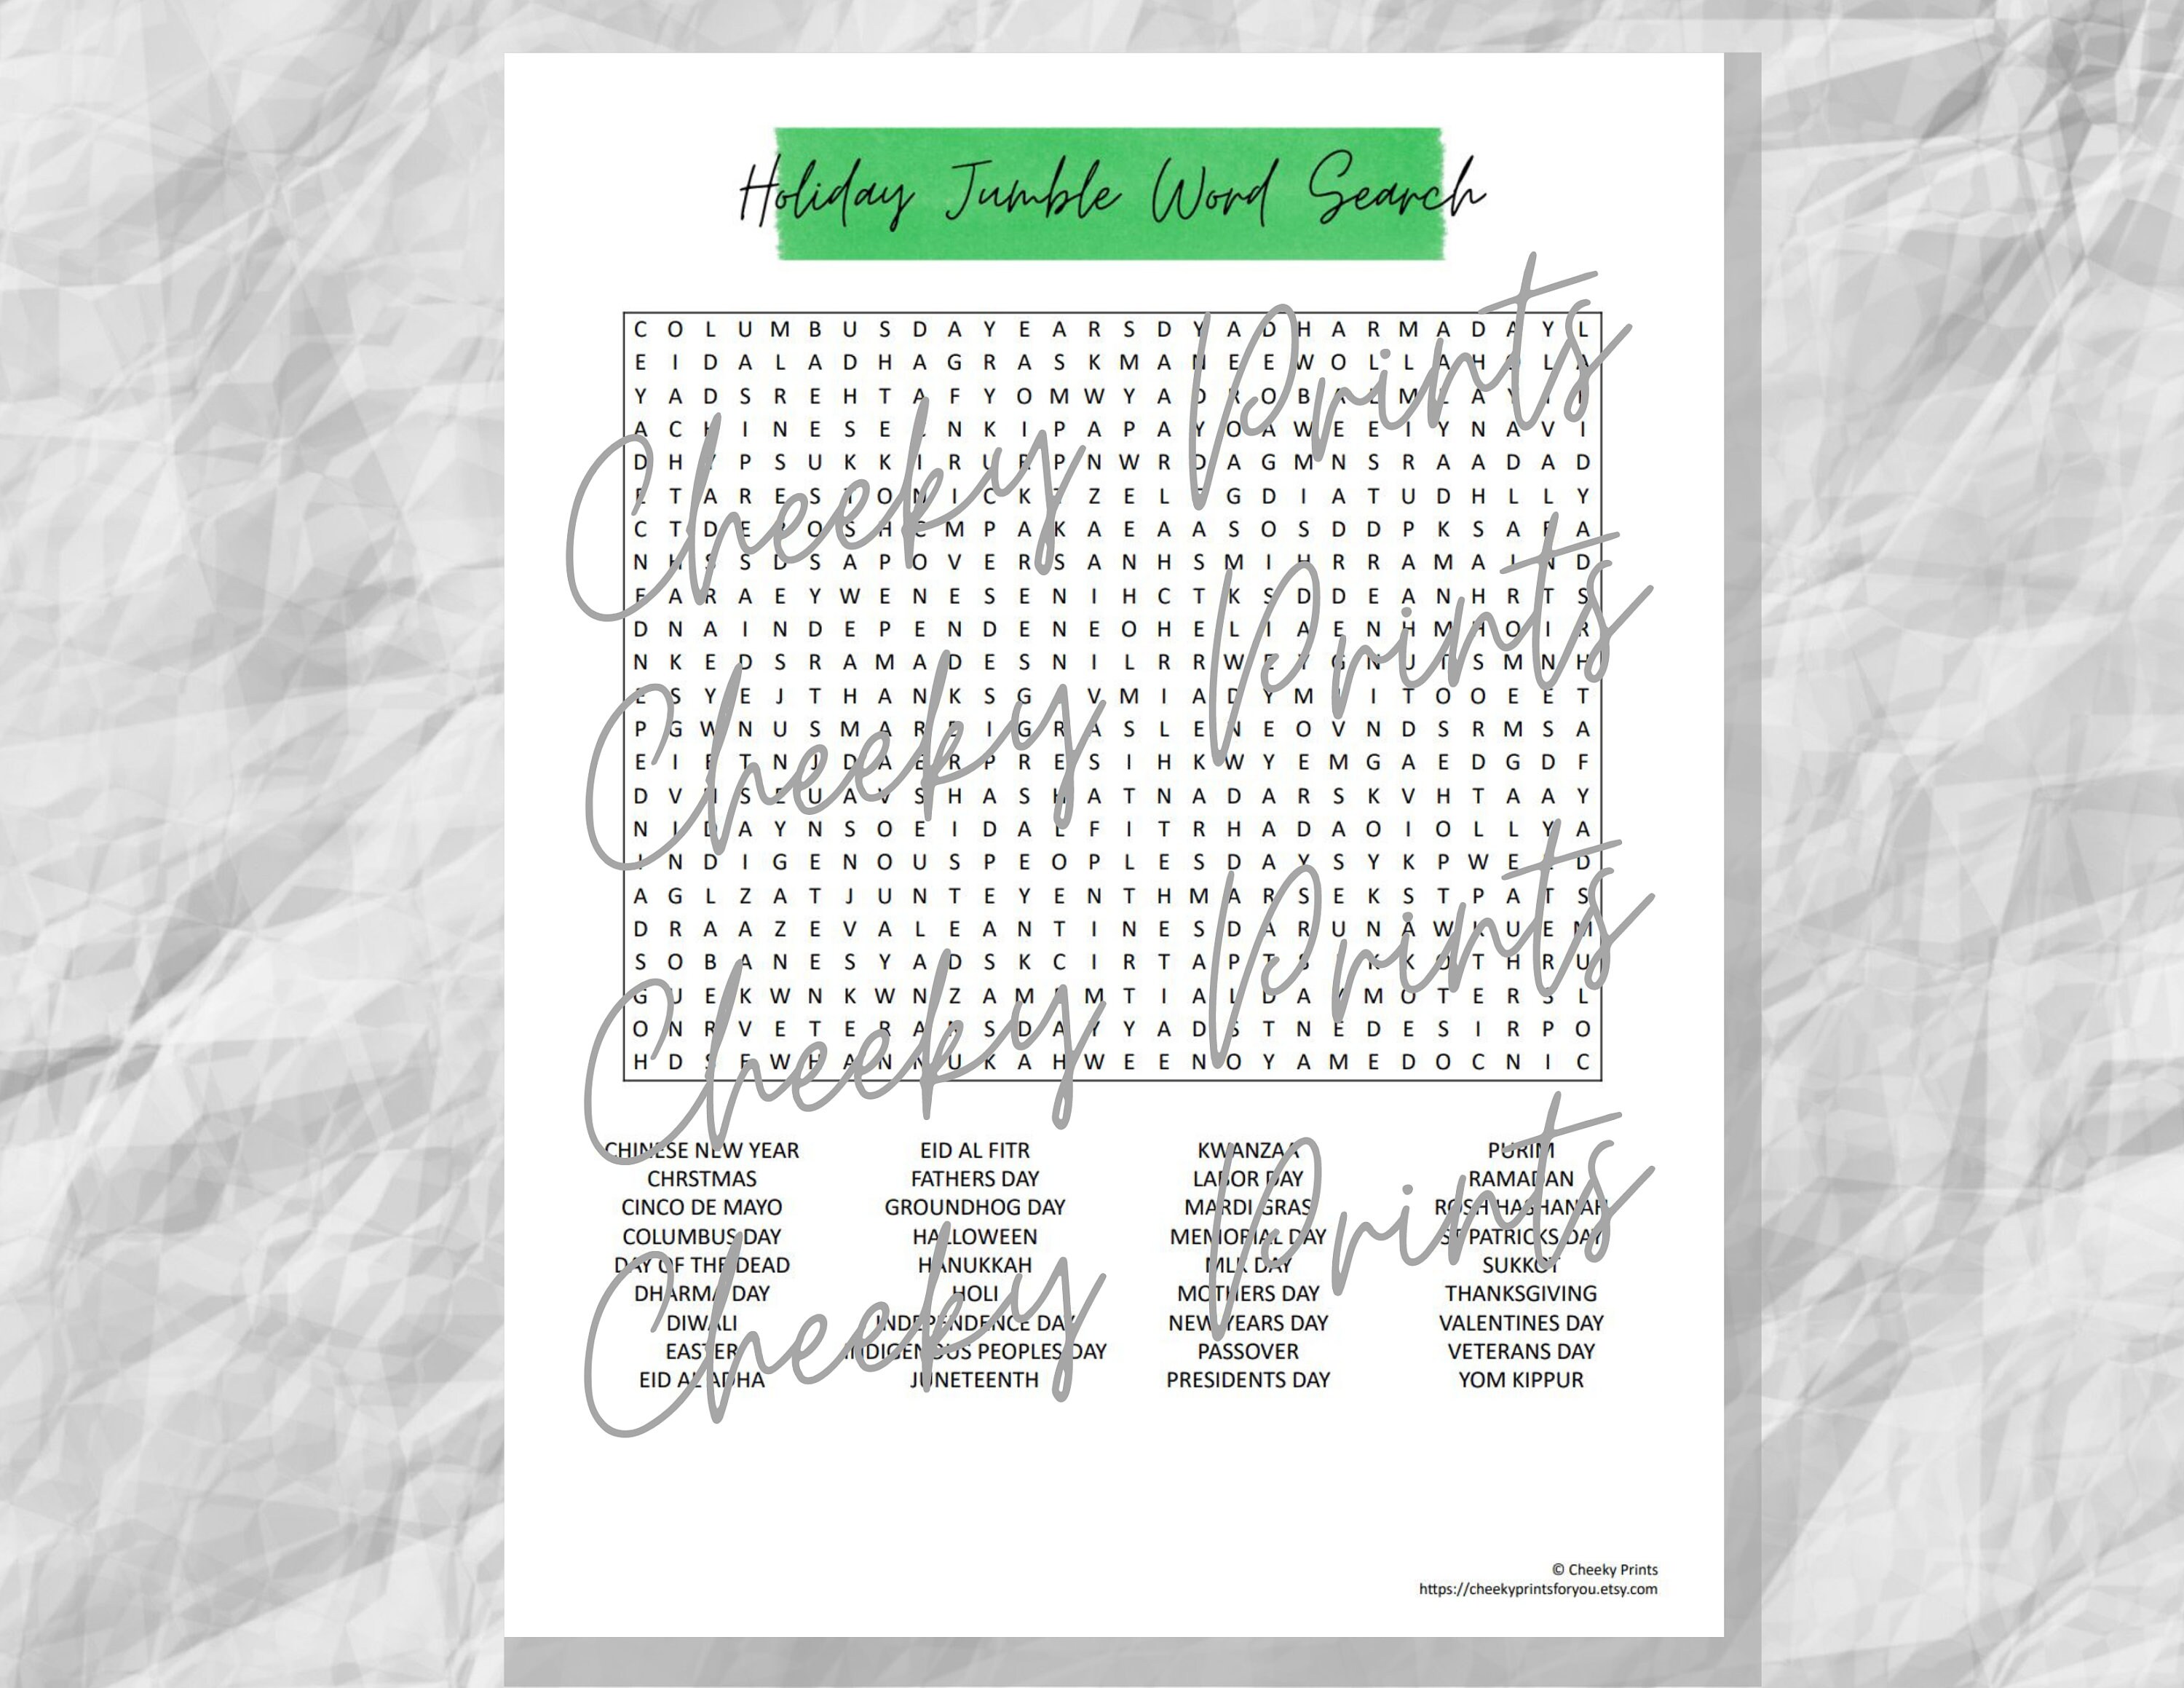 Holiday Jumble Word Search
C O L U M B U S D A Y E A R S D Y A D H A R M A D A Y L
E I D A L A D H A G R A S K M A N E E W O L L A H O L A
Y A D S R E H T A F Y O M W Y A D R O B A L M L A Y I
A C H I N E S E N K I P A P A Y O A W E E I Y N A V I
D H Y P S U K K I R U R P N W R D A G M N S R A A D A D
E T A R E S T O N I C K Z E L G D I A T U D H L L Y
C T D E O S H C M P A K A E A A S O S D D P K S A A
N H S S D S A P O V E R S A N H S M I H R R A M A I N D
E A R A E Y W E N E S E N I H C T K S D D E A N H R T S
D N A I N D E P E N D E N E O H E L I A E N H M H O I R
N K E D S R A M A D E S N I L R R W E Y G N U T S M N H
E S Y E J T H A N K S G I V M I A D Y M I T O O E E T
P G W N U S M A R D I G R A S L E N E O V N D S R M S A
E I E T N J D A E R P R E S I H K W Y E M G A E D G D F
D V S E U A V S H A S H A T N A D A R S K V H T A A Y
N I D A Y N S O E I D A L F I T R H A D A O I O L L Y A
I N D I G E N O U S P E O P L E S D A Y S Y K P W E D
A G L Z A T J U N T E Y E N T H M A R S E K S T P A T S
D R A A Z E V A L E A N T I N E S D A R U N A W K U E M
S O B A N E S Y A D S K C I R T A P T S K K O T H R U
G U E K W N K W N Z A M M T I A L D A Y M O T E R S L
O N R V E T E R A N S D A Y Y A D S T N E D E S I R P O
H D S F W H A N N U K A H W E E N O Y A M E D O C N I C
CHINESE NEW YEAR EID AL FITR KWANZAA PURIM
CHRSTMAS FATHERS DAY LABOR DAY RAMADAN
CINCO DE MAYO GROUNDHOG DAY MARDI GRAS ROSH HASHANAH
COLUMBUS DAY HALLOWEEN MEMORIAL DAY ST PATRICKS DAY
DAY OF THE DEAD HANUKKAH MLK DAY SUKKOT
DHARMA DAY HOLI MOTHERS DAY THANKSGIVING
DIWALI INDEPENDENCE DAY NEW YEARS DAY VALENTINES DAY
EASTER INDIGENOUS PEOPLES DAY PASSOVER VETERANS DAY
EID AL ADHA JUNETEENTH PRESIDENTS DAY YOM KIPPUR
Cheeky Prints
Cheeky Prints
Cheeky Prints
Cheeky Prints
© Cheeky Prints
https://cheekyprintsforyou.etsy.com